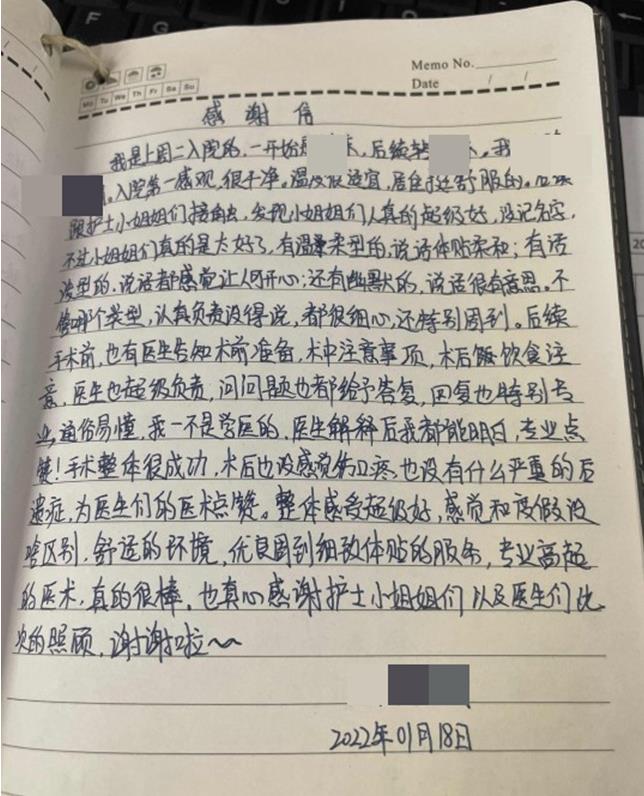 Memo No.
Date / /
Mo Tu We Th Fr Sa Su
感谢信
我是上周二入院的，一开始 ，后续转 。我
。入院第一感观，很干净。温度很适宜，居住挺舒服的。
跟护士小姐姐们接触，发现小姐姐们人真的超级好，没记名字，
不过小姐姐们真的是太好了，有温柔型的，说话体贴柔和；有活
泼型的，说话都感觉让人何开心；还有幽默的，说话很有意思。不
管哪个类型，认真负责没得说，都很细心，还特别周到。后续
手术前，也有医生告知术前准备，术中注意事项，术后饭饮食注
意，医生也超级负责，问问题也都给予答复，回复也特别专
业，通俗易懂，我一不是学医的，医生解释后我都能明白，专业点
赞！手术整体很成功，术后也没感觉伤口疼，也没有什么严重的后
遗症，为医生们的医术点赞。整体感受超级好，感觉和度假没
啥区别，舒适的环境，优良周到细致体贴的服务，专业高超
的医术，真的很棒，也真心感谢护士小姐姐们以及医生们此
次的照顾，谢谢啦～～
2022年01月18日
20